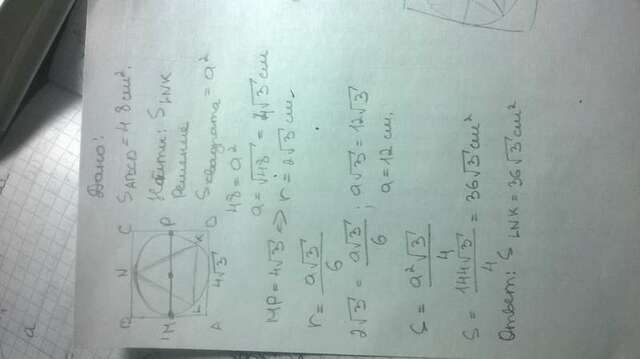 Дано:
S ABCD = 48 см².
Найти: S LNK
Решение
S квадрата = a²
48 = a²
a = √48 = 4√3 см
MP = 4√3 => r = 2√3 см.
r = a√3/6
2√3 = a√3/6 ; a√3 = 12√3
a = 12 см.
S = a²√3/4
S = 144√3/4 = 36√3 см²
Ответ: S LNK = 36√3 см²
B N C
M P
L K
A 4√3 D